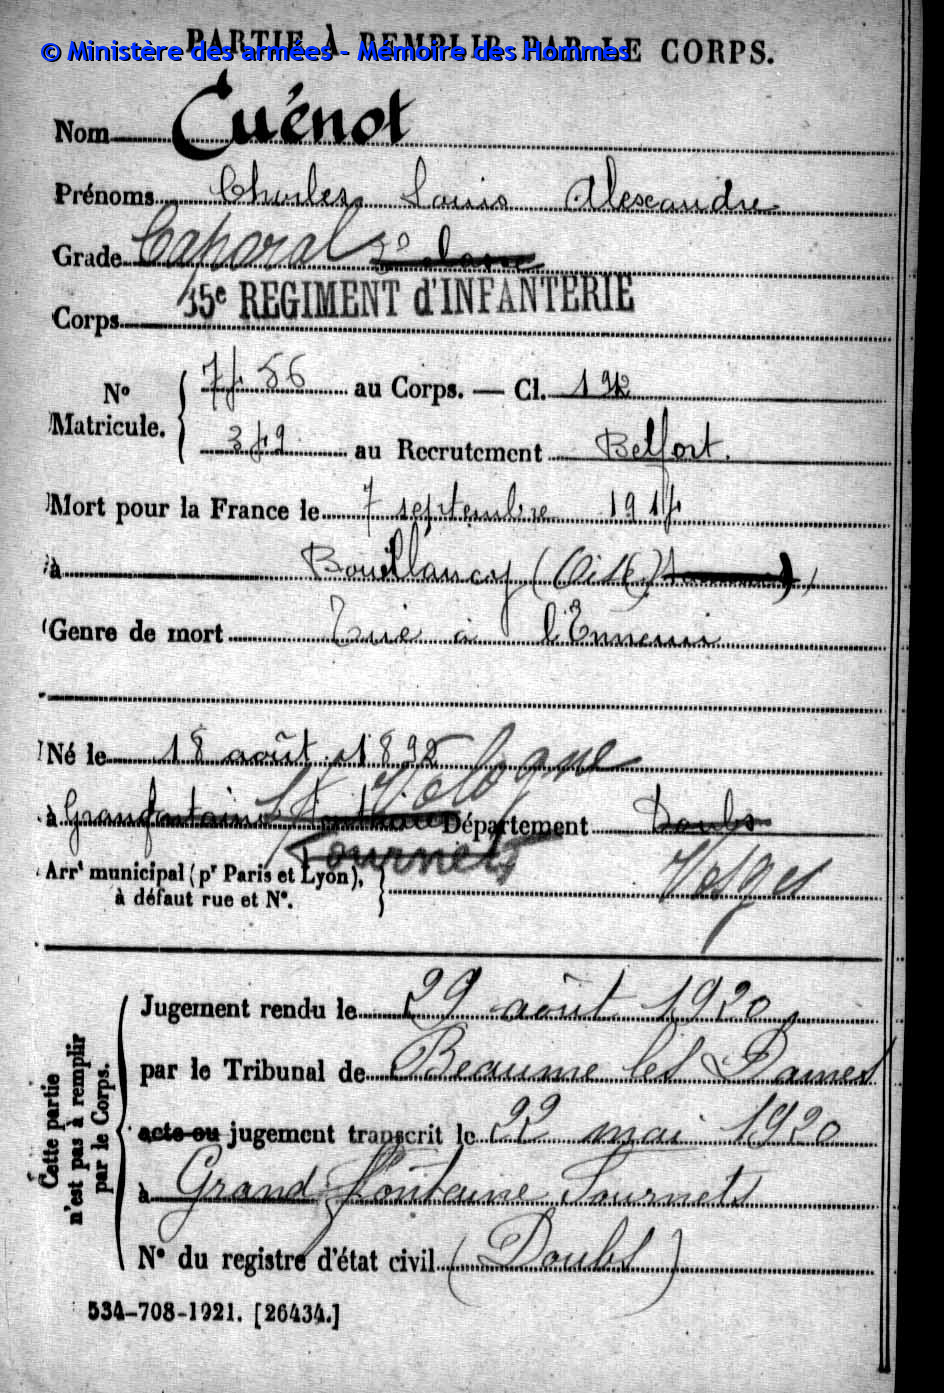 PARTIE À REMPLIR PAR LE CORPS.
© Ministère des armées - Mémoire des Hommes
Nom Cuénot
Prénoms Charles Louis Alexandre
Grade Caporal 2e classe
Corps 35e REGIMENT d'INFANTERIE
No Matricule.
7486 au Corps. — Cl. 1912
349 au Recrutement Belfort.
Mort pour la France le 7 septembre 1914
à Bouillancy (Oise)
Genre de mort Tué à l'Ennemi
Né le 18 août 1892
Vologne
à Grandfontaine Département Doubs
Fournets
Arrt municipal (pr Paris et Lyon), à défaut rue et No.
Vosges
Cette partie n'est pas à remplir par le Corps.
Jugement rendu le 29 août 1920
par le Tribunal de Beaume les Dames
acte ou jugement transcrit le 22 mai 1920
à Grand Fontaine Fournets
No du registre d'état civil (Doubs)
534-708-1921. [26434.]